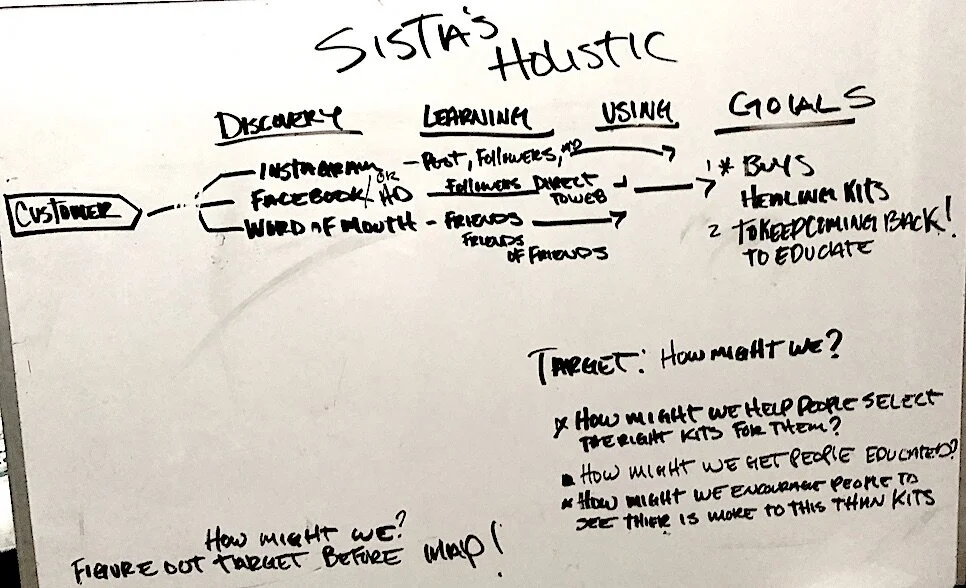 SISTA'S
HOLISTIC
DISCOVERY LEARNING USING GOALS
CUSTOMER
INSTAGRAM - POST, FOLLOWERS,
FACEBOOK/ OR FOLLOWERS DIRECT
TO WEB
WORD OF MOUTH - FRIENDS
FRIENDS
OF FRIENDS
1 * BUYS
HEALING KITS
2 TO KEEP COMING BACK!
TO EDUCATE
TARGET: HOW MIGHT WE?
* HOW MIGHT WE HELP PEOPLE SELECT
THE RIGHT KITS FOR THEM?
▪ HOW MIGHT WE GET PEOPLE EDUCATED?
* HOW MIGHT WE ENCOURAGE PEOPLE TO
SEE THIER IS MORE TO THIS THAN KITS
HOW MIGHT WE?
FIGURE OUT TARGET BEFORE MAP!